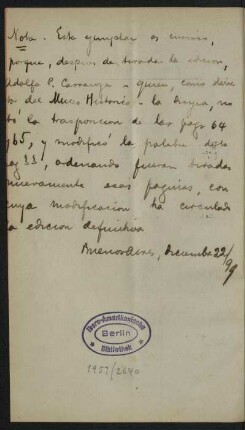 Nota. Este ejemplar es único,
porque, despues de tirada la edicion,
Adolfo P. Carranza - quien, como direc
del Museo Histórico - la dirigía, no
tó la trasposicion de las pags 64
y 65, y modificó la palabra de la
pag 33, ordenando fueran tiradas
nuevamente esas paginas, con
cuya modificacion ha circulado
la edicion definitiva
Buenos Aires, diciembre 22/99
Ibero-Amerikanische
Berlin
Bibliothek
1957/2640